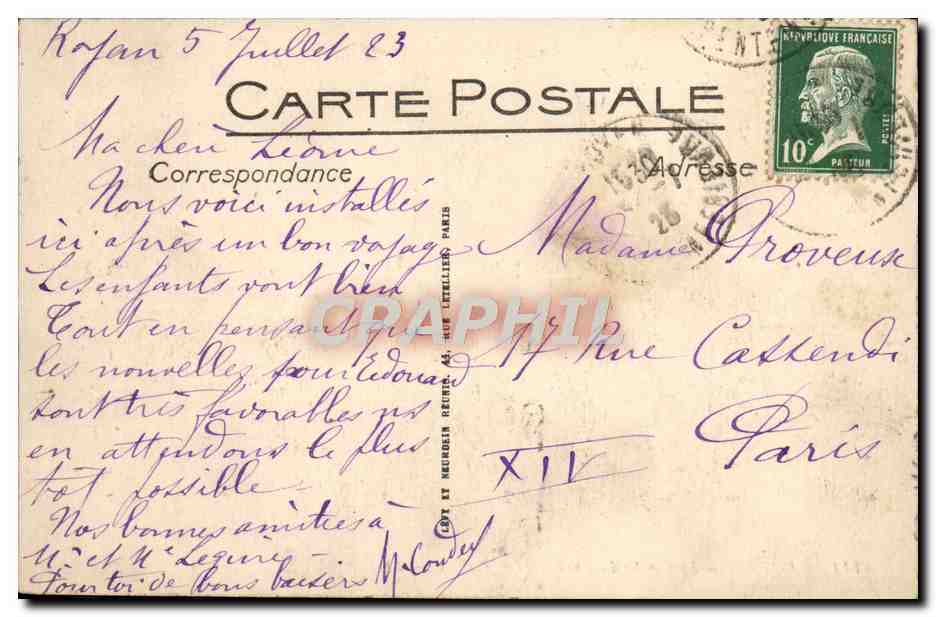 Royan 5 Juillet 23
CARTE POSTALE
Ma chère Léonie
Correspondance
Nous voici installés
ici après un bon voyage
Les enfants vont bien
Tout en pensant que
les nouvelles pour Edouard
sont très favorables ns
en attendons le plus
tôt possible
Nos bonnes amitiés à
Mr et Me
Pour toi de bons baisers
LÉVY ET NEURDEIN RÉUNIS, 44, RUE LETELLIER, PARIS
Adresse
REPVBLIQUE FRANÇAISE
POSTES
10c
PASTEUR
Madame Proveuse
17 Rue Cassendi
Paris
XIV
CRAPHIL